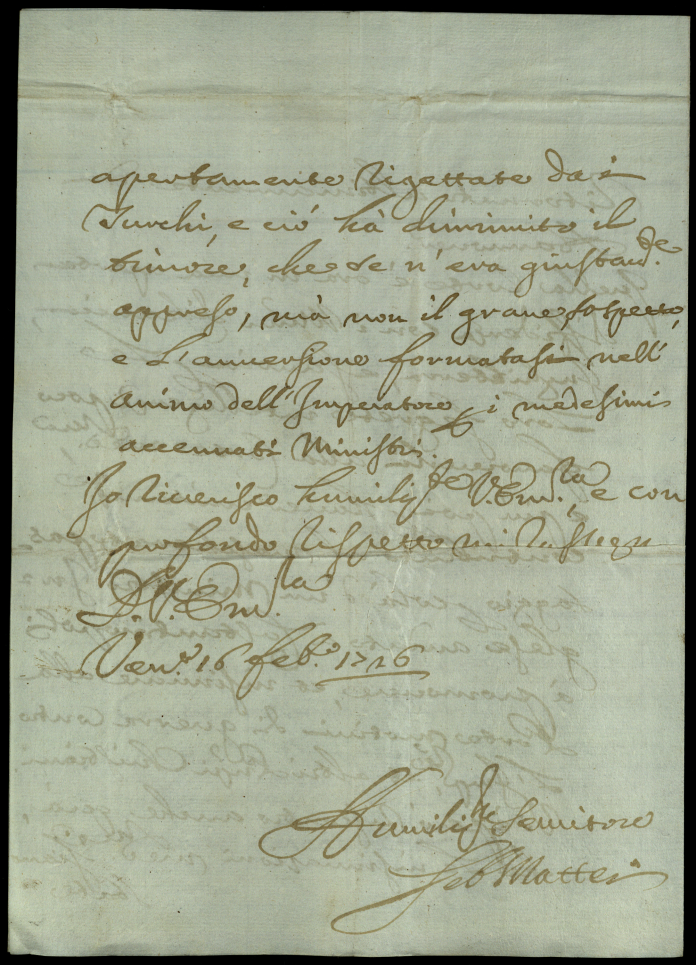 apertamente rigettate da i
Turchi, e ciò hà diminuito il
timore, che se n'era giustam.de
appreso, mà non il graue sospetto,
e l'auuersione formatasi nell'
animo dell'Imperatore i medesimi
accennati Ministri.
Io riuerisco humiliss.te V. Em.za e con
profondo rispetto mi rassegno
D. V. Em.za
Ven.a 16 feb.o 1716
Humiliss.o Seruitore
Seb Mattei